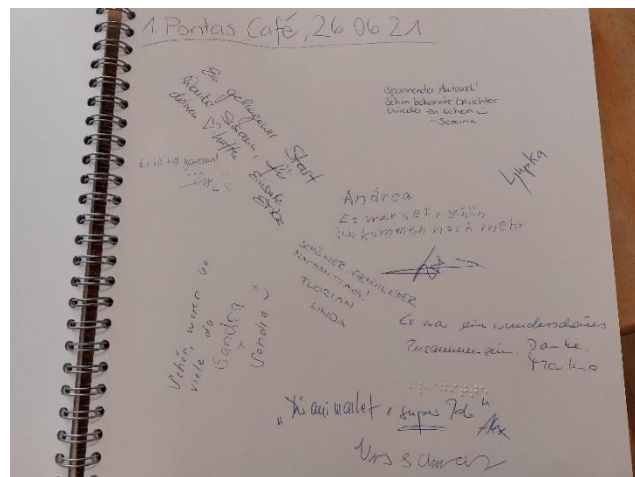 1. Pontas Café, 26 06 21
Ein gelungener Start
Danke Susann, für
deinen ♡-haften Einsatz
spannender Austausch!
Schön bekannte Gesichter
wieder zu sehen
Es ist toll gewesen!
Andrea
Es war sehr schön
ich kommen noch mehr
SCHÖNER, GEMÜTLICHER
NACHMITTAG!
FLORIAN
LINDA
Schön, waren so
viele da
Sandra
Sandra
Es war ein wunderschönes
Zusammensein. Danke.
super Job"
Alex
Urs Schwarz